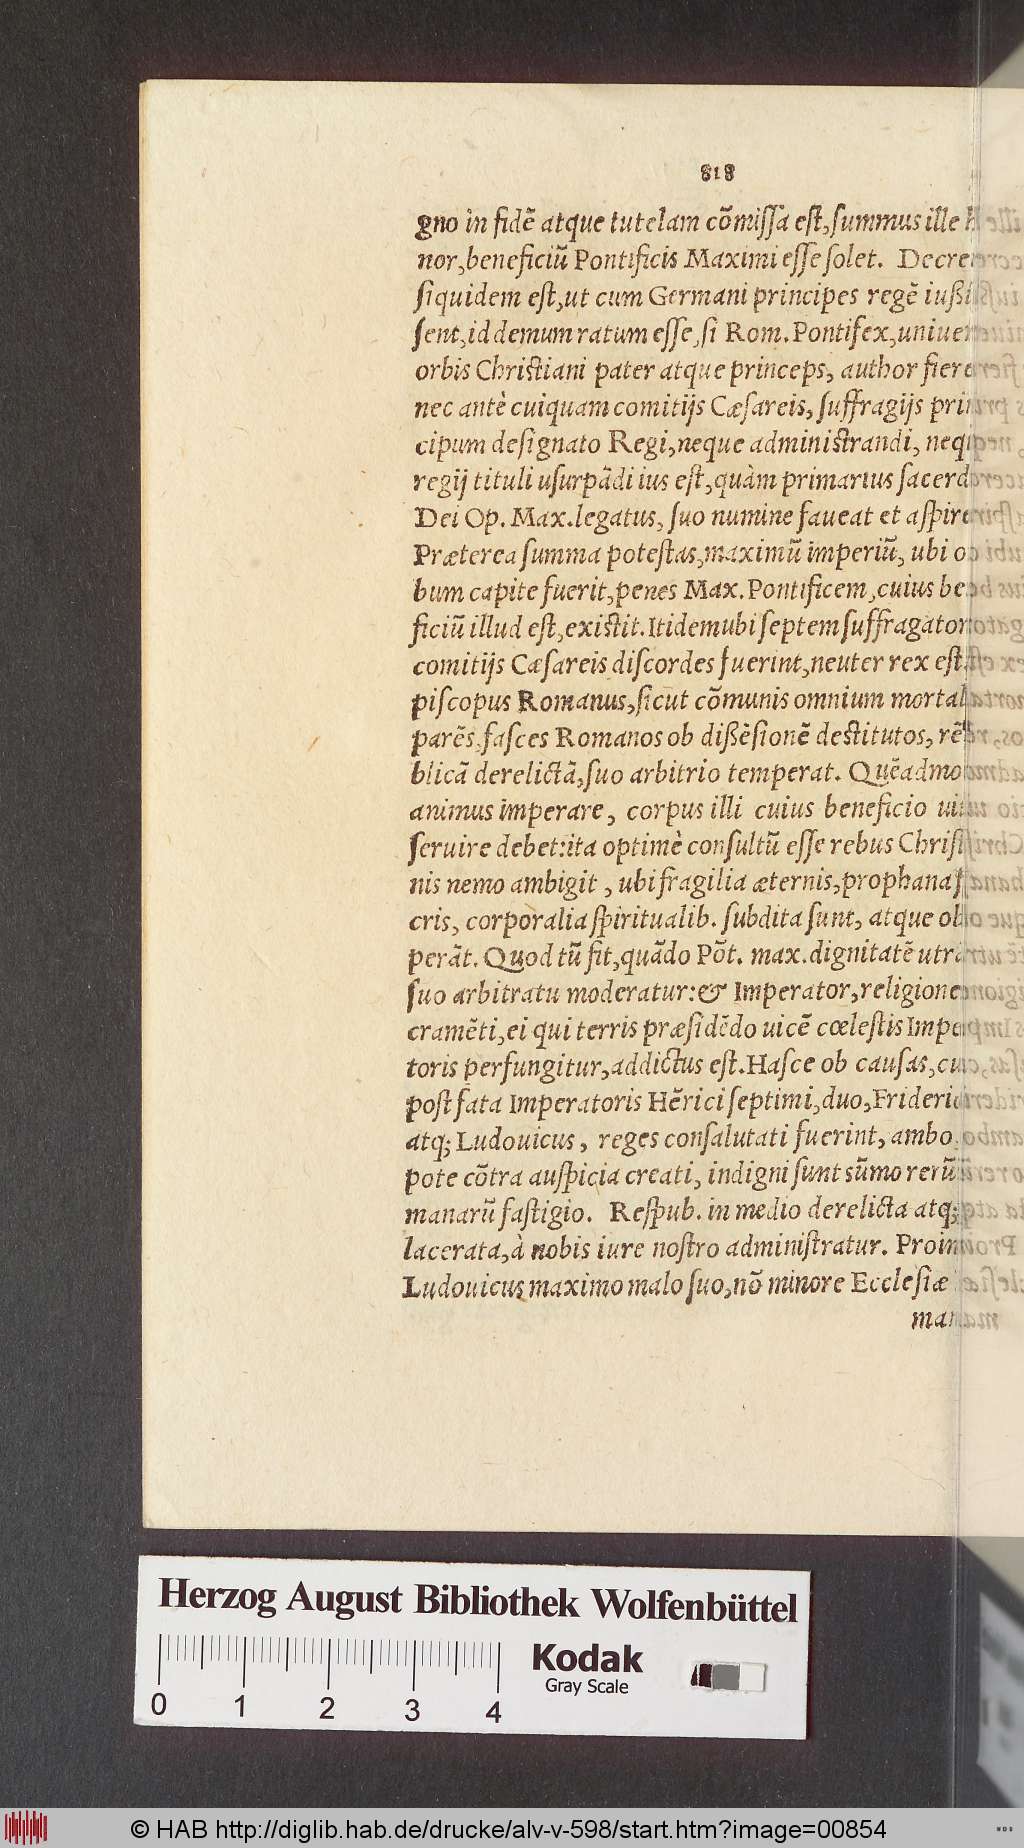 818
gno in fidē atque tutelam cōmissa est, summus ille
nor, beneficiū Pontificis Maximi esse solet. Decre
siquidem est, ut cum Germani principes regē iußi
sent, id demum ratum esse, si Rom. Pontifex, uniuer
orbis Christiani pater atque princeps, author fiere
nec antè cuiquam comitijs Cæsareis, suffragijs prin
cipum designato Regi, neque administrandi, neq
regij tituli usurpādi ius est, quàm primarius sacerd
Dei Op. Max. legatus, suo numine faueat et aspire
Præterea summa potestas, maximū imperiū, ubi o
bum capite fuerit, penes Max. Pontificem, cuius be
ficiū illud est, existit. Itidem ubi septem suffragator
comitijs Cæsareis discordes fuerint, neuter rex est
piscopus Romanus, sicut cōmunis omnium mortal
parēs, fasces Romanos ob dißēsionē destitutos, rē
blicā derelictā, suo arbitrio temperat. Quēadmo
animus imperare, corpus illi cuius beneficio ui
seruire debet: ita optimè consultū esse rebus Christi
nis nemo ambigit, ubi fragilia æternis, prophana s
cris, corporalia spiritualib. subdita sunt, atque ob
perāt. Quod tū fit, quādo Pōt. max. dignitatē utr
suo arbitratu moderatur: & Imperator, religione
cramēti, ei qui terris præsidēdo uicē cœlestis Impe
toris perfungitur, addictus est. Hasce ob causas, cu
post fata Imperatoris Hērici septimi, duo, Frideri
atq; Ludouicus, reges consalutati fuerint, ambo
pote cōtra auspicia creati, indigni sunt sūmo rerū
manarū fastigio. Respub. in medio derelicta atq;
lacerata, à nobis iure nostro administratur. Proin
Ludouicus maximo malo suo, nō minore Ecclesiæ
man
Herzog August Bibliothek Wolfenbüttel
Kodak
Gray Scale
0 1 2 3 4
© HAB http://diglib.hab.de/drucke/alv-v-598/start.htm?image=00854